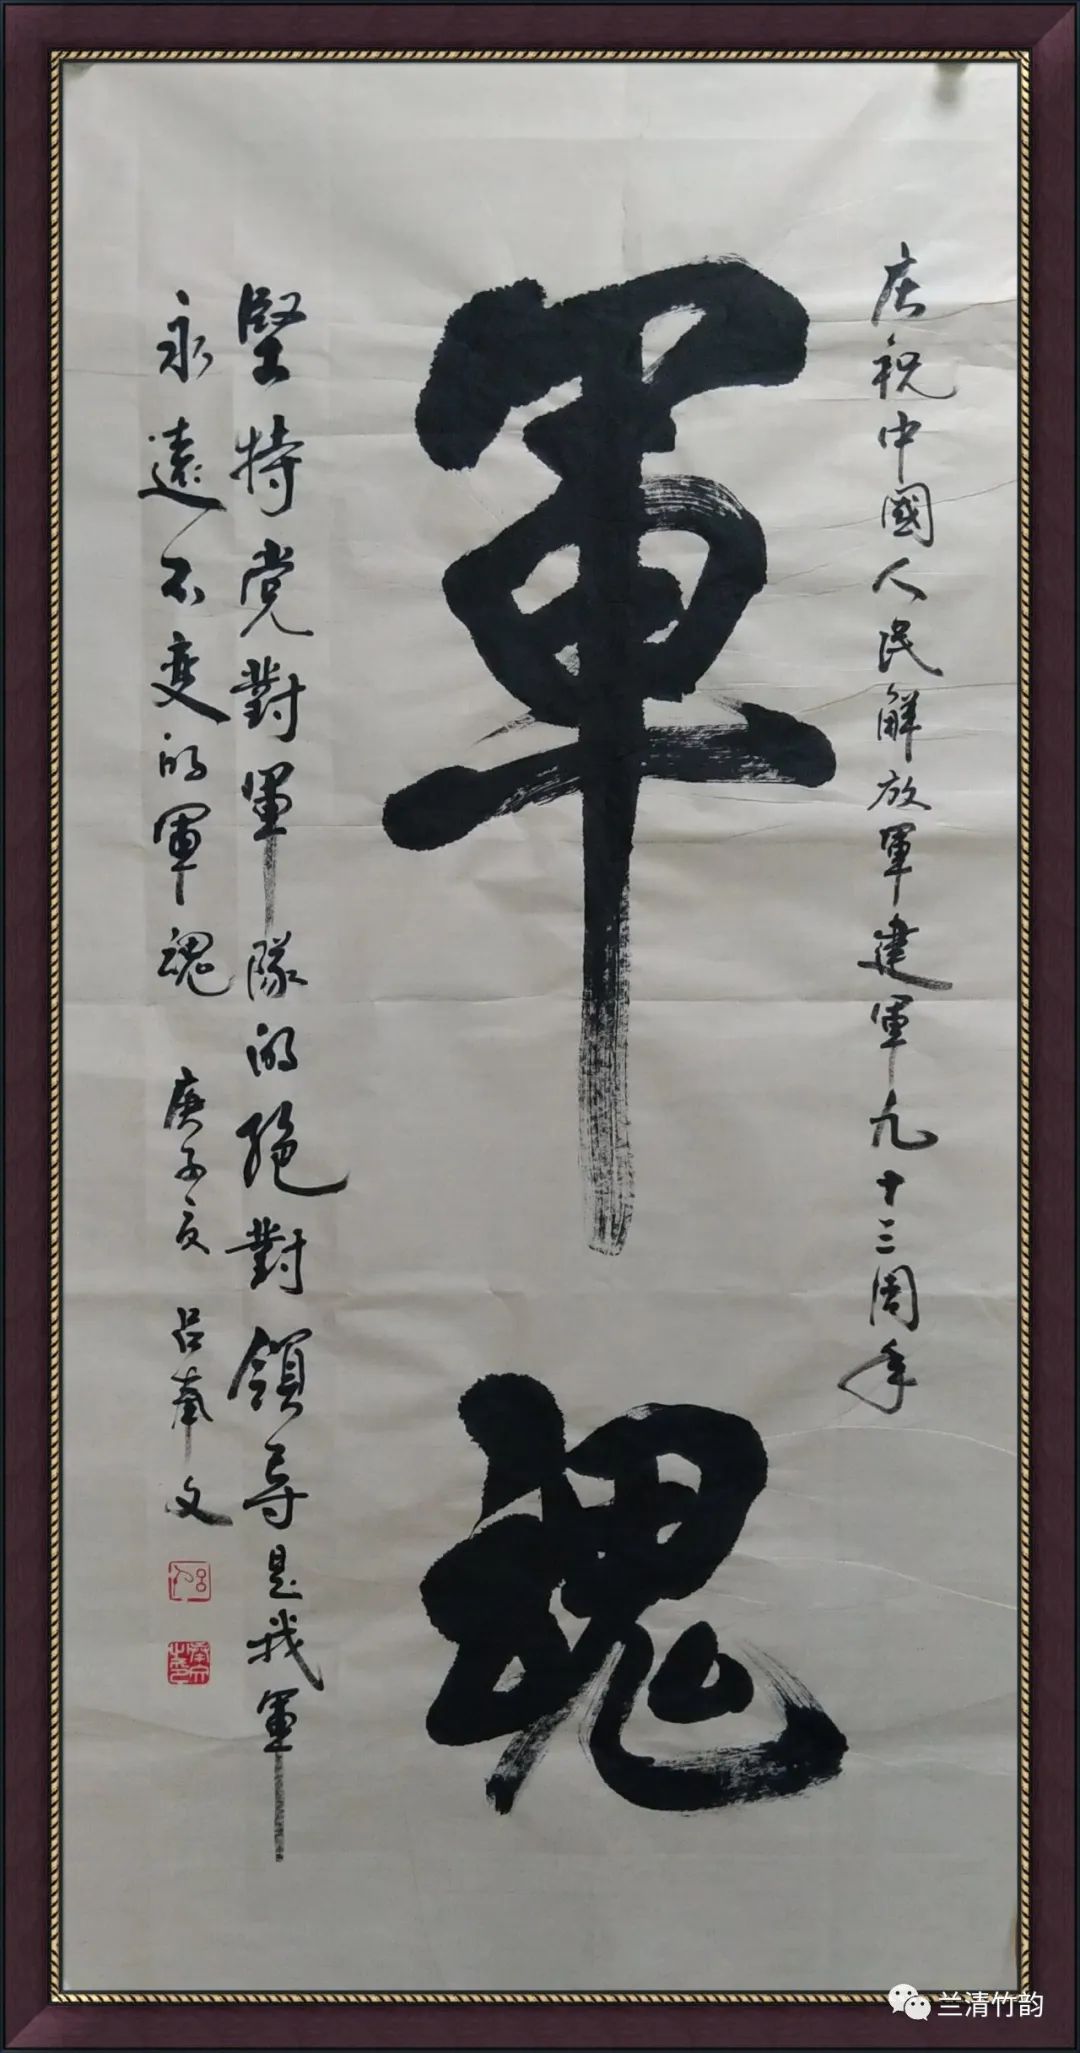 庆祝中國人民解放軍建軍九十三周年
軍魂
堅持党對軍隊的絕對領导是我軍
永遠不变的軍魂 庚子夏 吕奉文
兰清竹韵